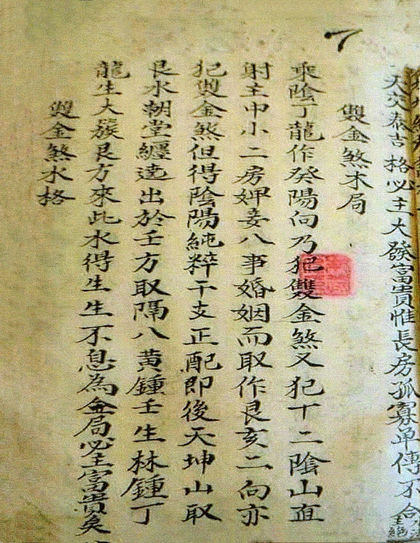 7
穴泰吉格必主大發富貴惟長房孤寡单傳不
雙金煞木局
乘陰丁龍作癸陽向乃犯雙金煞又犯十二陰山直
射主中小二房婢妾八事婚姻而取作艮亥二向亦
犯雙金煞但得陰陽純粹干支正配即後天坤山取
艮水朝堂纏遶出於壬方取隔八黃鍾壬生林鍾丁
龍生大族艮方來此水得生生不息為金局必主富貴矣
雙金煞水格